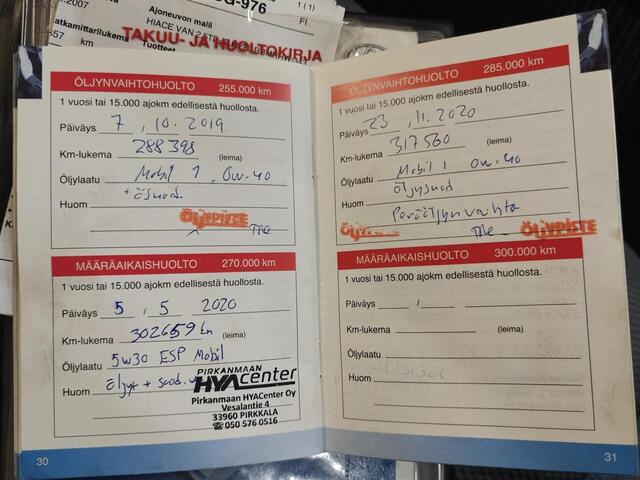 G-976
1 ( 1 )
Ajoneuvon malli
FI
HIACE VAN 2.5TD
Matkamittarilukema
Tuotteet
657 km
TAKUU- JA HUOLTOKIRJA
ÖLJYNVAIHTOHUOLTO 255.000 km
1 vuosi tai 15.000 ajokm edellisestä huollosta.
Päiväys 7 . 10. 2019
Km-lukema 288 398 (leima)
Öljylaatu Mobil 1 0w-40
Huom + ösuod.
ÖLJYPISTE
MÄÄRÄAIKAISHUOLTO 270.000 km
1 vuosi tai 15.000 ajokm edellisestä huollosta.
Päiväys 5 , 5 2020
Km-lukema 302659 km (leima)
Öljylaatu 5w30 ESP Mobil
Huom öljyt + suod.
PIRKANMAAN
HYAcenter
Pirkanmaan HYACenter Oy
Vesalantie 4
33960 PIRKKALA
☎ 050 576 0516
30
ÖLJYNVAIHTOHUOLTO 285.000 km
1 vuosi tai 15.000 ajokm edellisestä huollosta.
Päiväys 23 , 11. 2020
Km-lukema 317560 (leima)
Öljylaatu Mobil 1 0w-40
öljysuod
Huom Peräöljynvaihto
ÖLJYPISTE
MÄÄRÄAIKAISHUOLTO 300.000 km
1 vuosi tai 15.000 ajokm edellisestä huollosta.
Päiväys /
Km-lukema (leima)
Öljylaatu
Huom
31